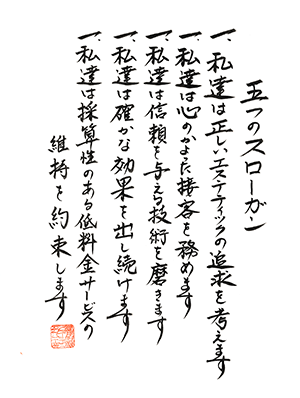 五つのスローガン
一、私達は正しいエステティックの追求を考えます
一、私達は心のかよった接客を務めます
一、私達は信頼を与える技術を磨きます
一、私達は確かな効果を出し続けます
一、私達は採算性のある低料金サービスの
維持を約束します